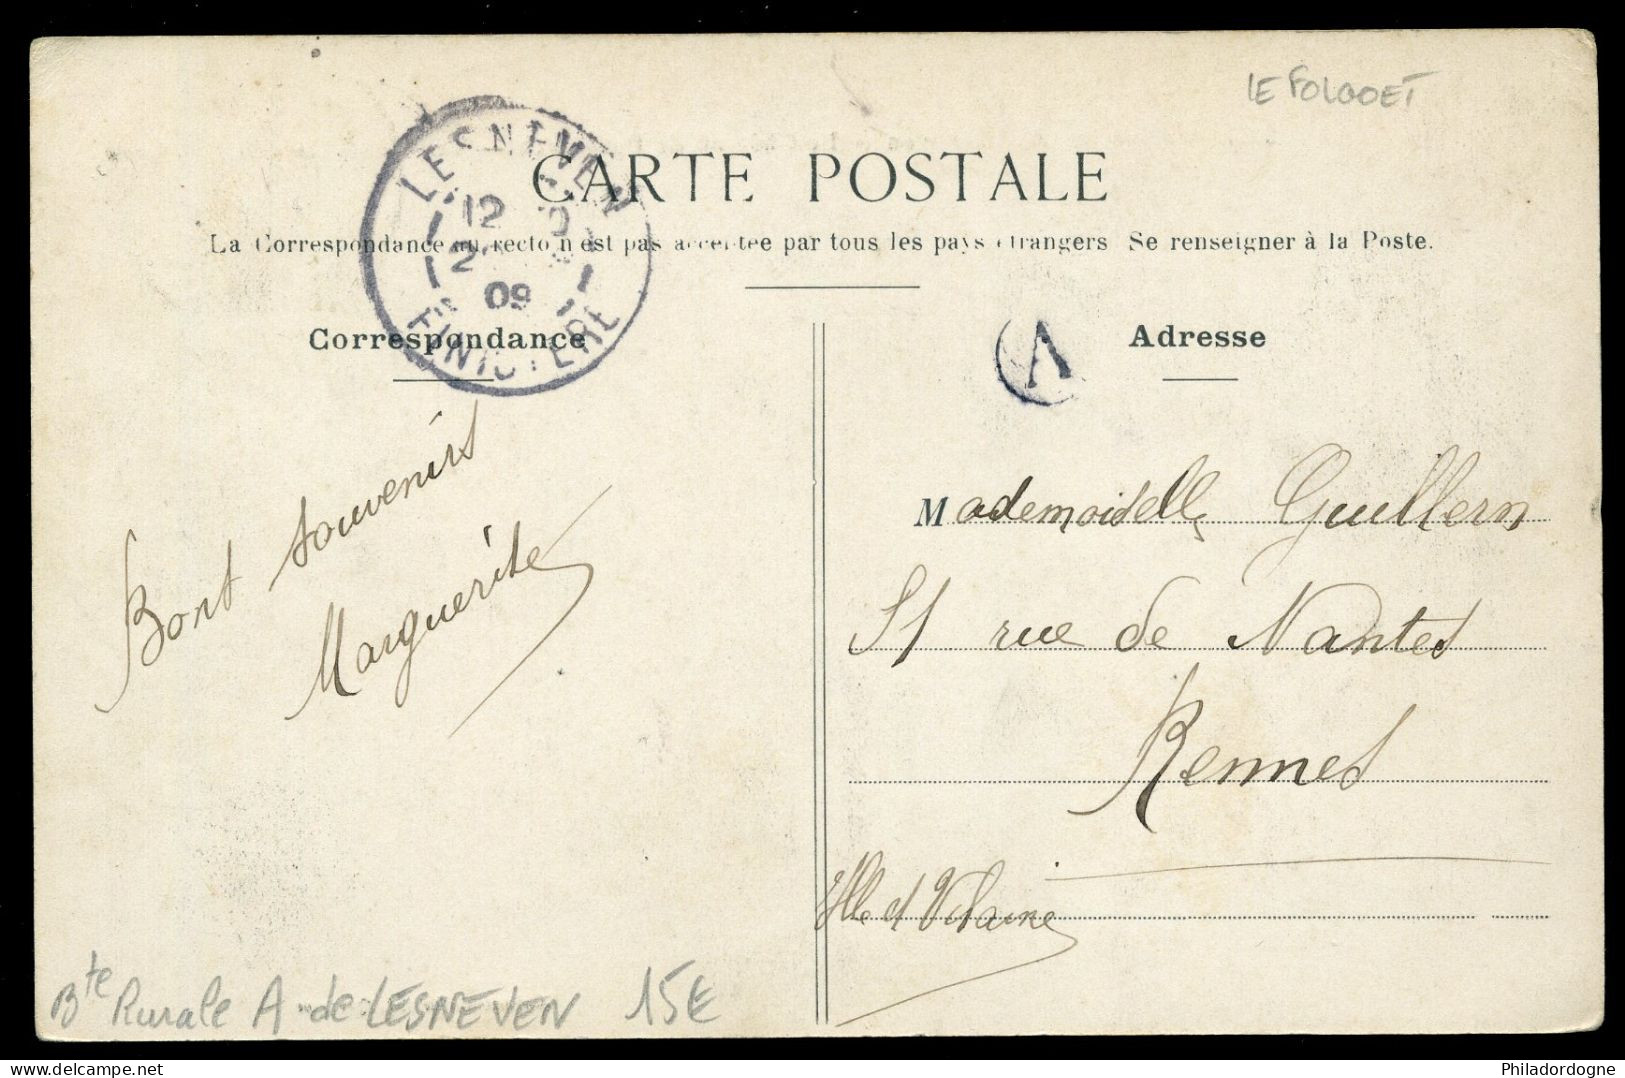 LE FOLGOET
CARTE POSTALE
La Correspondance au recto n'est pas acceptée par tous les pays étrangers Se renseigner à la Poste.
LESNEVEN
12
09
FINISTERE
Correspondance
A
Adresse
Bont souvenirs
Marguerite
Mademoiselle Guillern
51 rue de Nantes
Rennes
Ille et Vilaine
Bte Rurale A de LESNEVEN 15€
Philadordogne